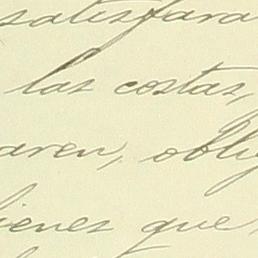 satisfara
las costas,
aren, obli
ienes que